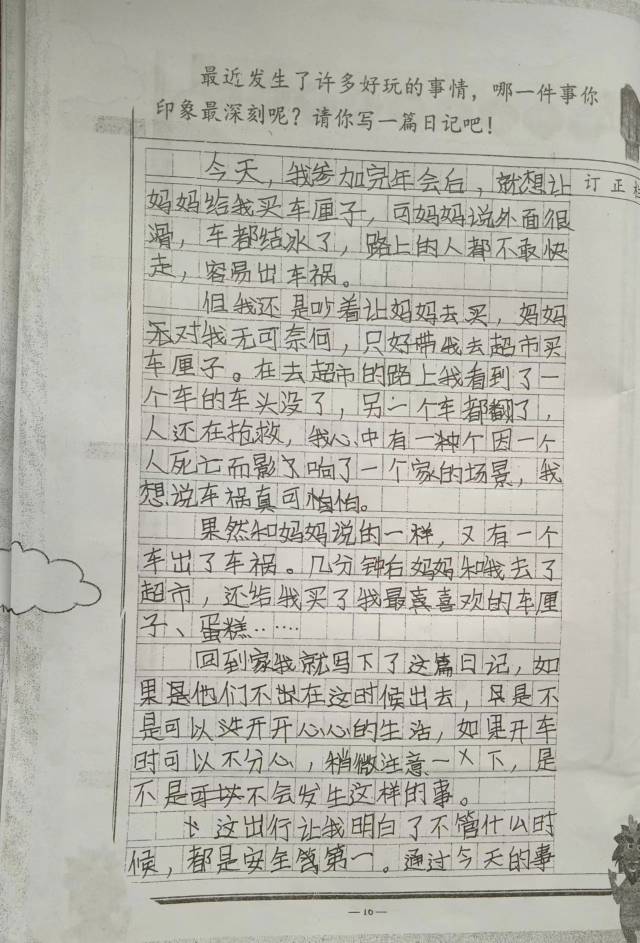 最近发生了许多好玩的事情，哪一件事你
印象最深刻呢？请你写一篇日记吧！
订正栏
今天，我参加完年会后，就想让
妈妈给我买车厘子，可妈妈说外面很
滑，车都结冰了，路上的人都不敢快
走，容易出车祸。
但我还是吵着让妈妈去买，妈妈
无对我无可奈何，只好带我去超市买
车厘子。在去超市的路上我看到了一
个车的车头没了，另一个车都翻了，
人还在抢救，我心中有一种个因一个
人死亡而影了响了一个家的场景，我
想说车祸真可怕怕。
果然和妈妈说的一样，又有一个
车出了车祸。几分钟后妈妈和我去了
超市，还给我买了我最喜欢的车厘
子、蛋糕……
回到家我就写下了这篇日记，如
果是他们不在这时候出去，是不
是可以开开心心的生活，如果开车
时可以不分心，稍微注意一下，是
不是可以不会发生这样的事。
这出行让我明白了不管什么时
候，都是安全第一。通过今天的事
—16—